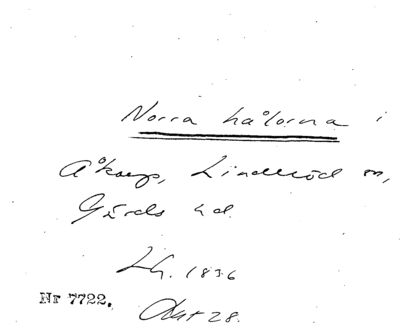 Norra hålorna i
Åkarp, Linderöd sn,
Gärds hd.
Lh. 1836
Nr 7722. Akt 28.